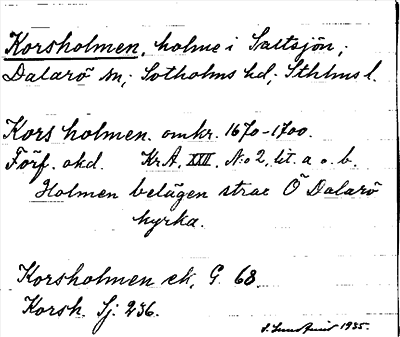 Korsholmen, holme i Saltsjön;
Dalarö sn; Sotholms hd; Sthlms l.
Kors holmen. omkr. 1670-1700.
Förf. okd. KrA. XXII, N:o 2, lit. a o. b.
Holmen belägen strax Ö Dalarö
kyrka.
Korsholmen ek, G. 68.
Korsh. Sj. 236.
1935.